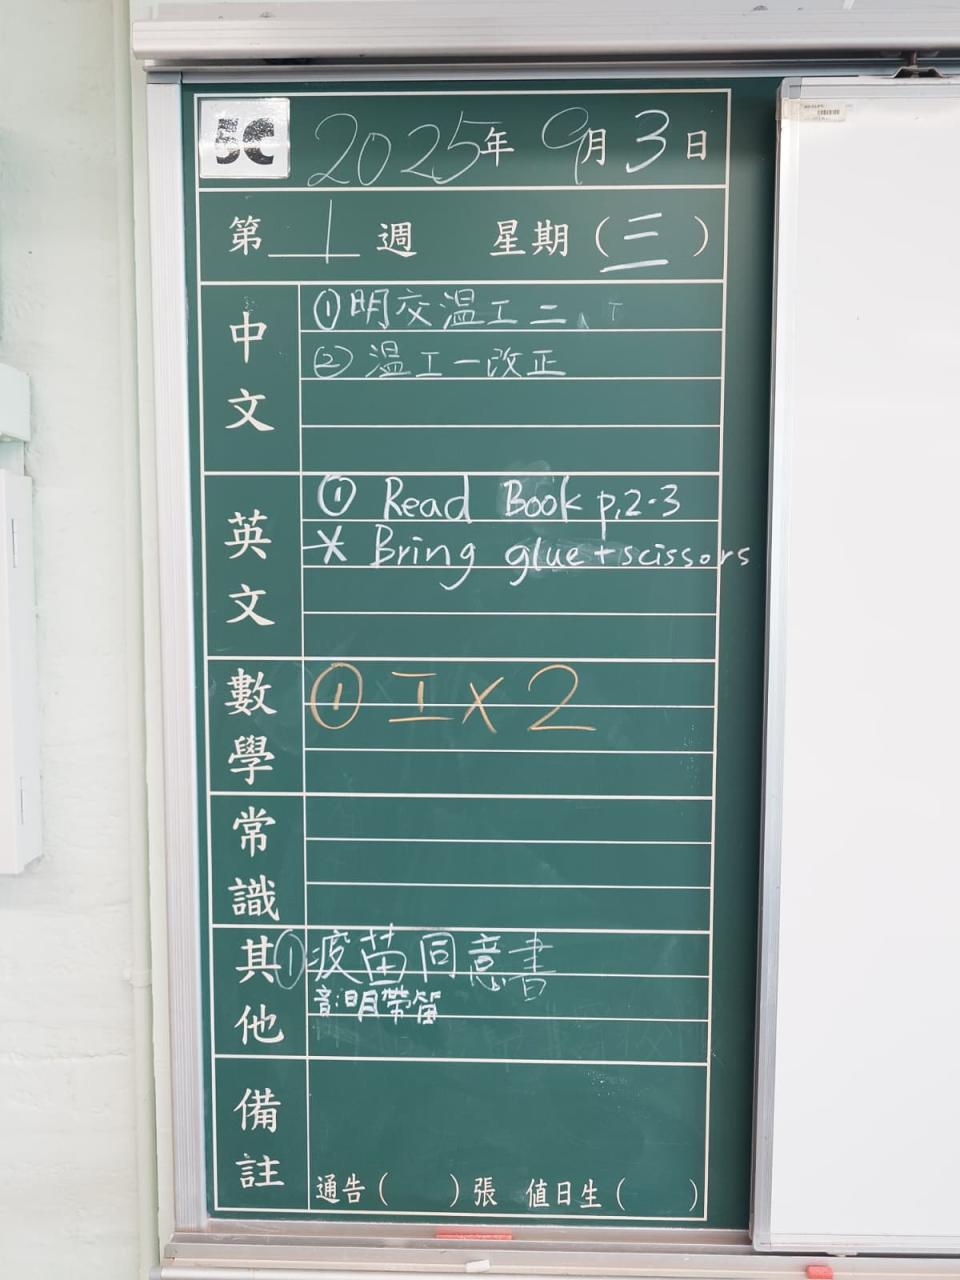 5C 2025年 9月 3日
第 1 週 星期（三）
中文
①明交温工二、
②温工一改正
英文
① Read Book p.2-3
* Bring glue + scissors
數學
① 工 X 2
常識
其他
①疫苗同意書
音:明帶笛
備註
通告（ ）張 值日生（ ）